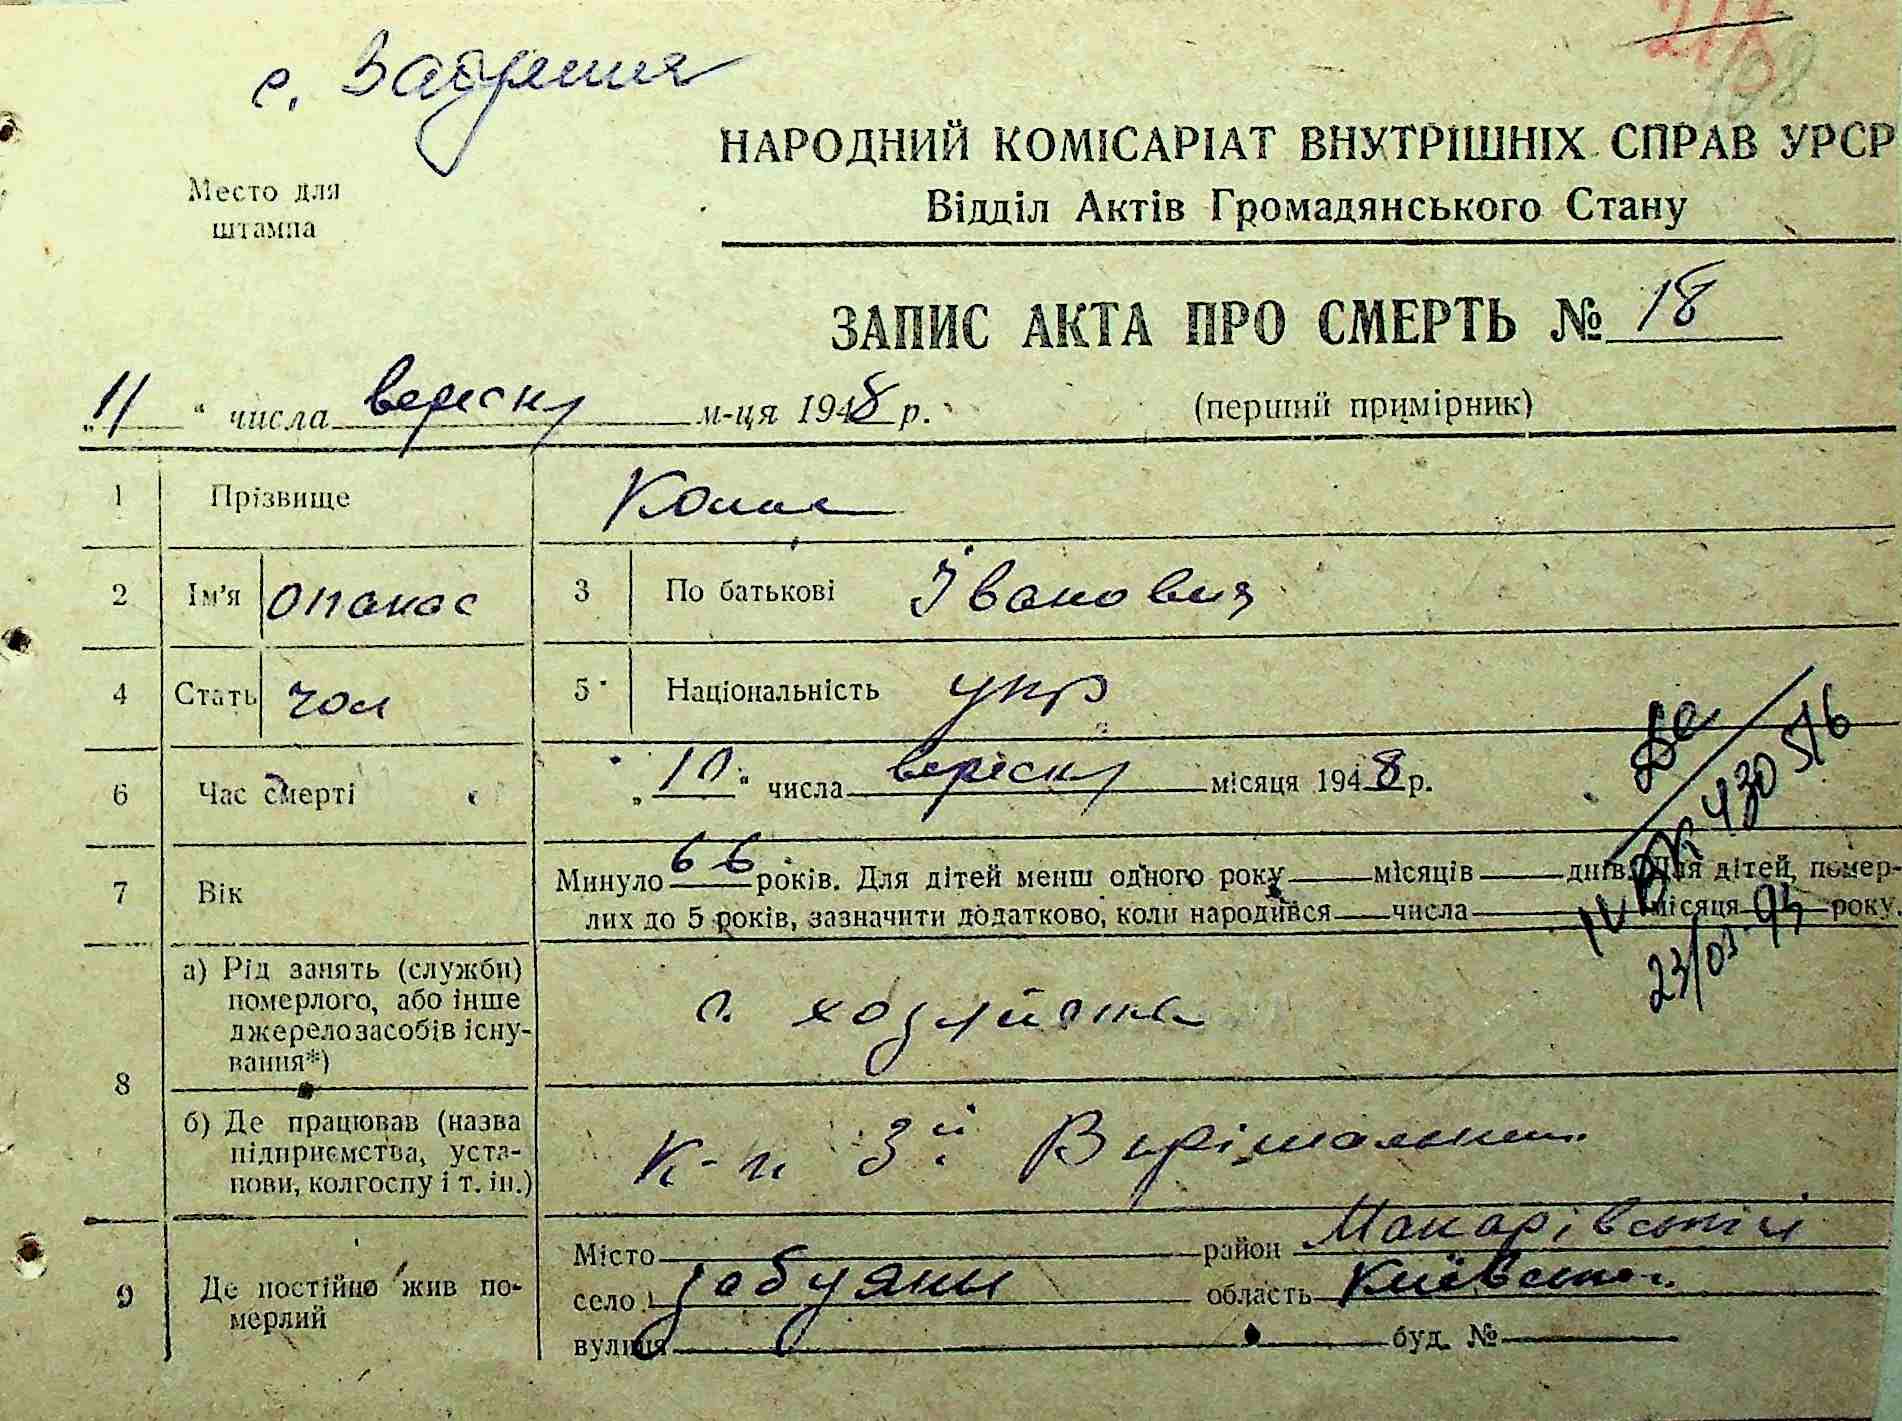 с. Забуяння
Место для
штампа
НАРОДНИЙ КОМІСАРІАТ ВНУТРІШНІХ СПРАВ УРСР
Відділ Актів Громадянського Стану
ЗАПИС АКТА ПРО СМЕРТЬ № 18
„11“ числа вересня м-ця 1948 р. (перший примірник)
1 Прізвище
2 Ім'я Опанас 3 По батькові Іванович
4 Стать чол 5 Національність укр
6 Час смерті „10“ числа вересня місяця 1948 р.
7 Вік Минуло 66 років. Для дітей менш одного року місяців днів. Для дітей, помер-
лих до 5 років, зазначити додатково, коли народився числа місяця року.
IV БК 430516
23/03-94
8 а) Рід занять (служби)
померлого, або інше
джерело засобів існу-
вання*)
с. хозяйства
б) Де працював (назва
підприємства, уста-
нови, колгоспу і т. ін.)
К-п 3й Вирішальний
9 Де постійно жив по-
мерлий
Місто район Макарівський
село Забуяння область Київська
вулиця буд. №